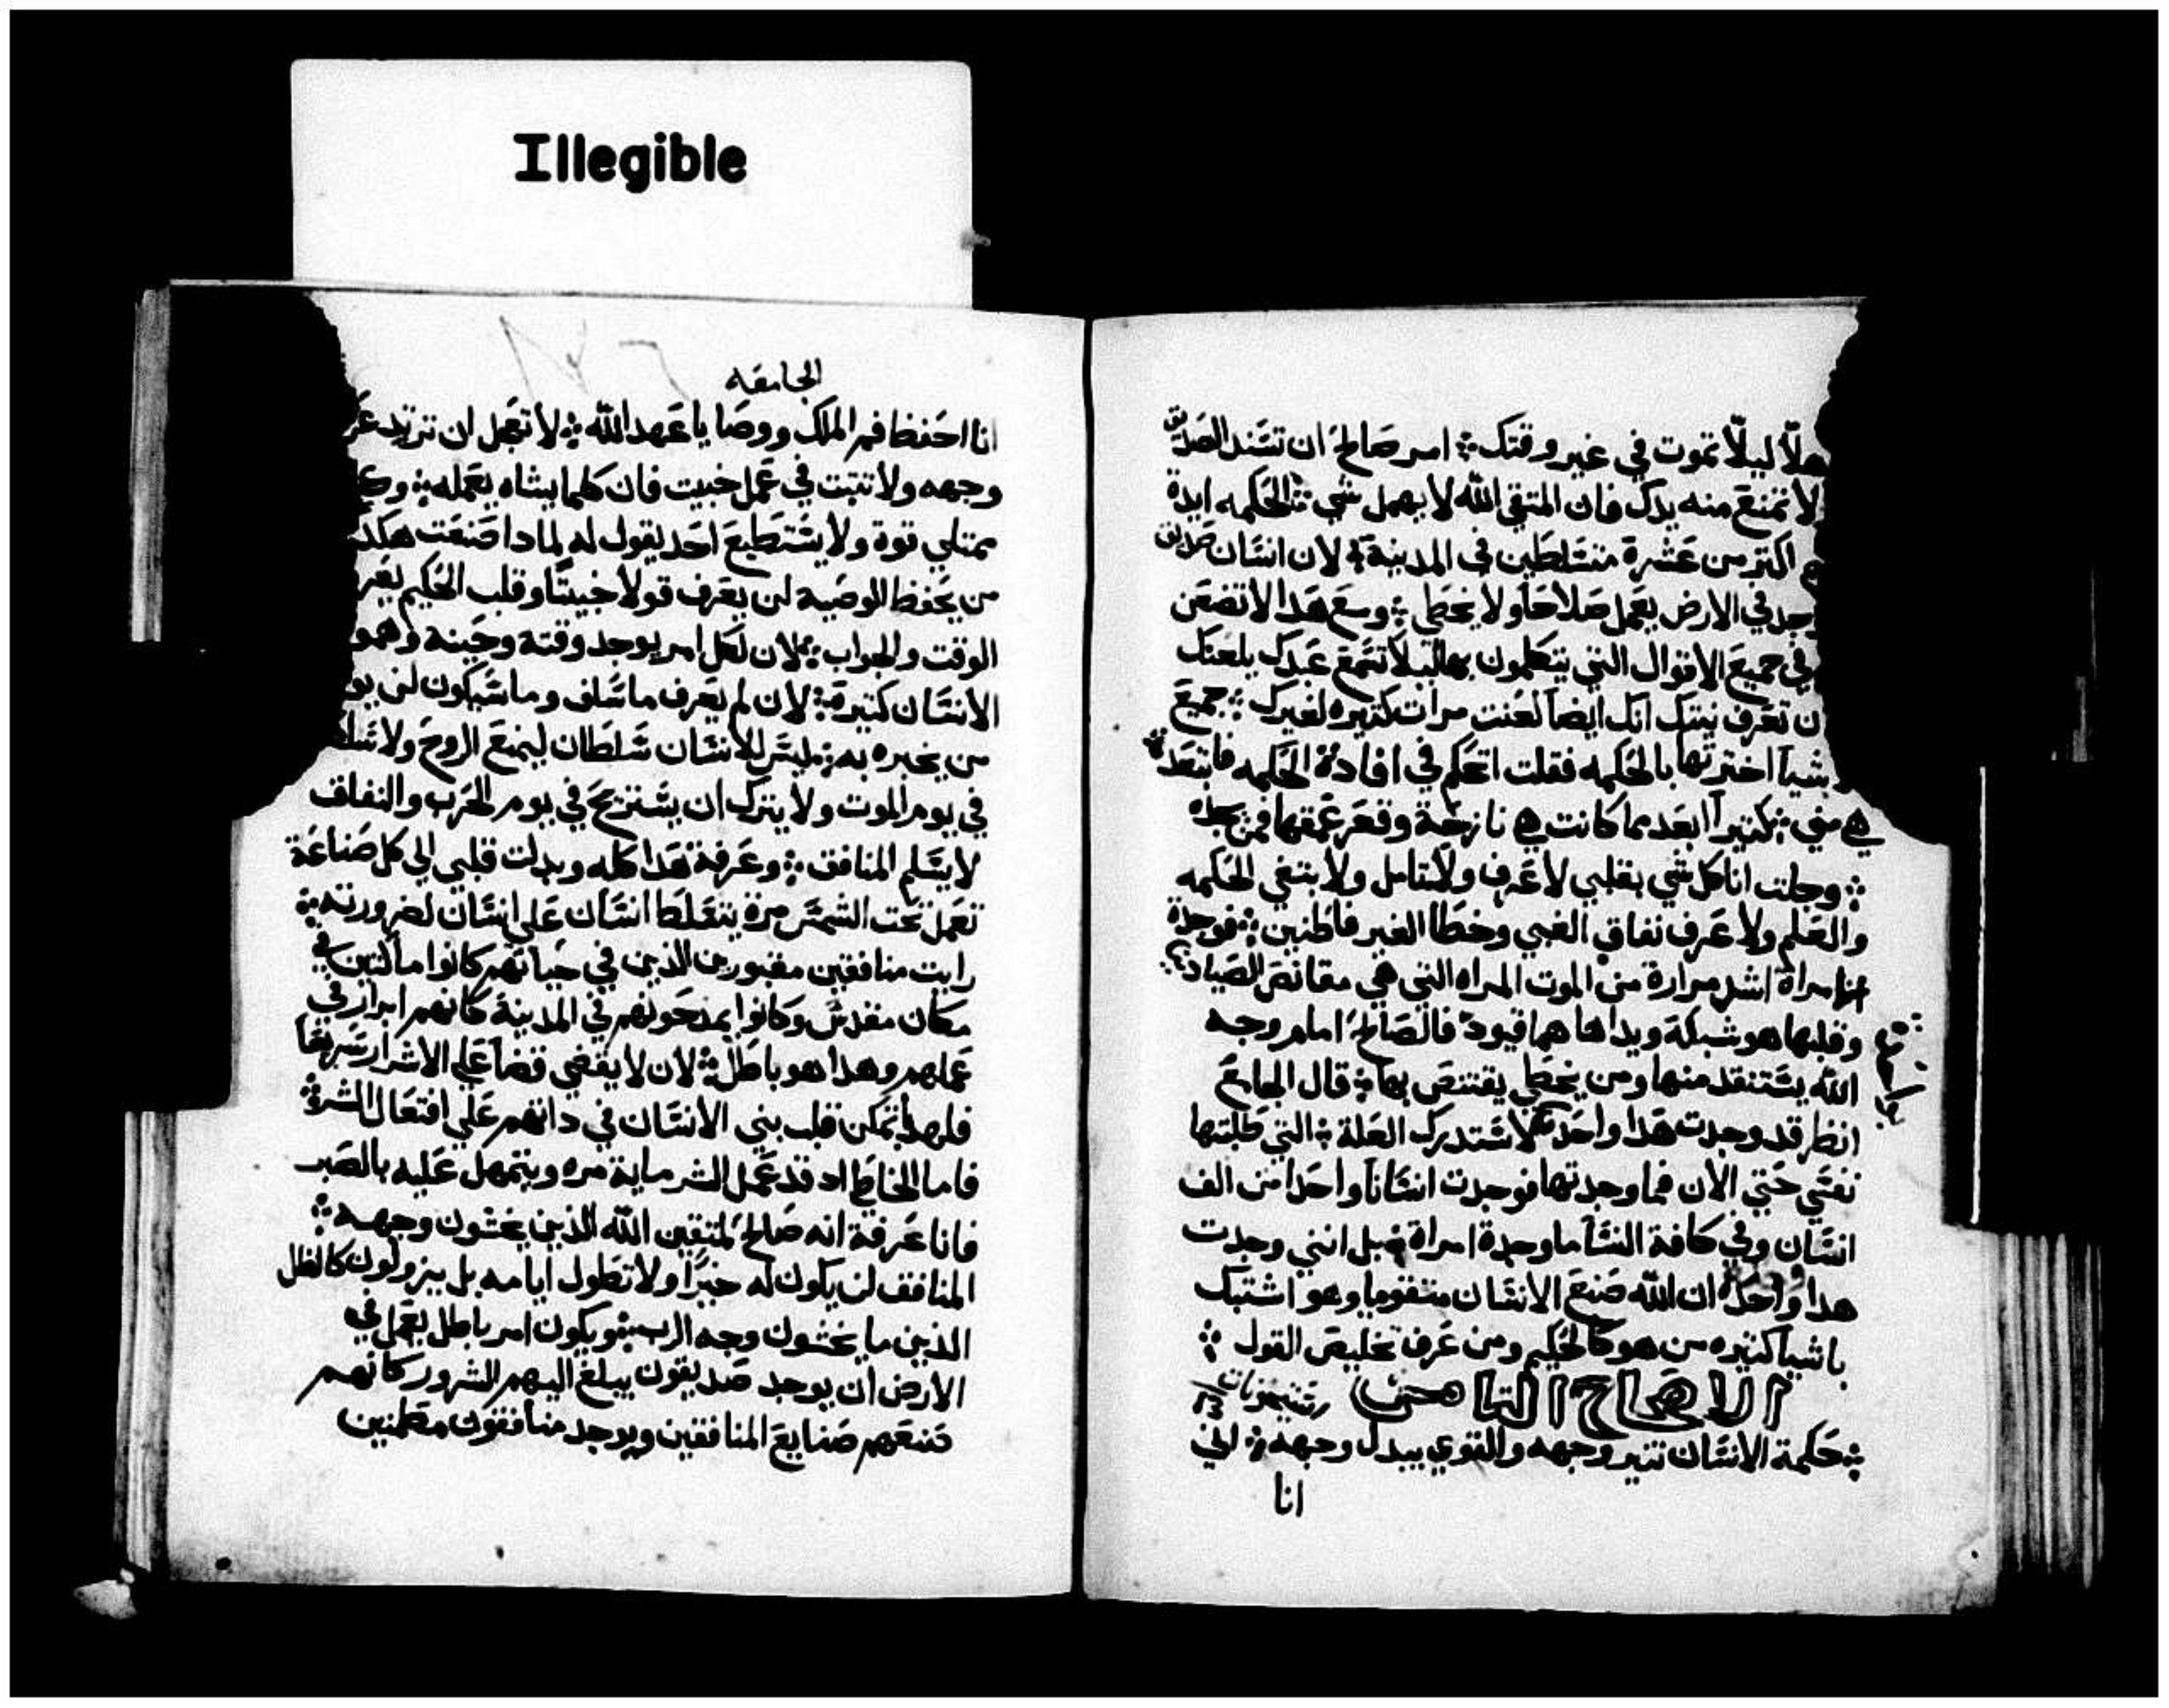 Illegible
هلًا ليلًا تموت في غير وقتك ܀ امر صالح ان تسند الصديق
لا تمنع منه يدك فان المتقي الله لا يهمل شي ܀ الحكمه ايدة
اكتر من عشرة متسلطين في المدينة ܀ لان انسان صديق
في الارض يعمل صلاحا ولا يخطي ܀ ومع هدا لا تضعن
في جميع الاقوال التي يتكلمون بها ليلا تسمع عبدك يلعنك
ان تعرف نيتك انك ايضا لعنت مرات كتيره لغيرك ܀ جميع
اختبرتها بالحكمه فقلت اتحكم في افادة الحكمه فابتعدة
هي مني ܀ كتيرا ابعد مما كانت هي نازحة وقعر عمقها فمن يجده
܀ وجلت انا كل شي بقلبي لاعرف ولاتامل ولابتغي الحكمه
والعلم ولاعرف نفاق الغبي وخطا الغير فاطنين ܀ فوجدة
امراة اشد مرارة من الموت المراه التي هي مقانص الصياد
وقلبها هو شبكة ويداها هما قيود فالصالح امام وجه
الله يستنقد منها ومن يخطي يقتنص بها ܀ قال الجامع
انظر قد وجدت هدا واحدة لاستدرك العلة ܀ التي طلبتها
نفسي حتي الان فما وجدتها فوجدت انسانا واحدا من الف
انسان وفي كافة النسا ما وجدة امراة ܀ بل انني وجدت
هدا واحدة ان الله صنع الانسان متقوما وهو اشتبك
باشيا كتيره من هو كالحكيم ومن عرف تخليص القول ܀
الاصحاح التامن
܀ حكمة الانسان تنير وجهه والقوي يبدل وجهه ܀ اني
انا
الجامعه
انا احفظ فم الملك ووصايا عهد الله ܀ لا تعجل ان ترتد
وجهه ولا تتبت في عمل خبيت فان كلما يشاه يعمله ܀
ممتلي قوة ولا يستطيع احد يقول له لمادا صنعت هكدا
من يحفظ الوصيه لن يعرف قولا خبيتا وقلب الحكيم
الوقت والجواب ܀ لان لكل امر يوجد وقته وحينه وهمو
الانسان كتيرة ܀ لان لم يعرف ما سلف وما سيكون لن
من يخبره به ܀ ليس للانسان سلطان ليمنع الروح ولا
في يوم الموت ولا يترك ان يستريح في يوم الحرب والنفاق
لا يسلم المنافق ܀ وعرفة هدا كله وبدلت قلبي الي كل صناعة
تعمل تحت الشمس مرة يتسلط انسان علي انسان لضرورته ܀
رايت منافقين مقبورين الدين في حياتهم كانوا ماكتين في
مكان مقدس وكانوا يمدحونهم في المدينة كانهم ابرار في
عملهم وهدا هو باطل ܀ لان لا يقضي قضا علي الاشرار سريعا
فلهدا تمكن قلب بني الانسان في داتهم علي افتعال الشر ܀
فاما الخاطي اد قد عمل الشر ماية مره ويتمهل عليه بالصبر
فانا عرفة انه صالح لمتقين الله الدين يخشون وجهه ܀
المنافق لن يكون له خيرا ولا تطول ايامه بل يزولون كالظل
الدين ما يخشون وجه الرب ܀ ويكون امر باطل يعمل في
الارض ان يوجد صديقون يبلغ اليهم الشرور كانهم
صنعهم صنايع المنافقين ويوجد منافقون مطمنين